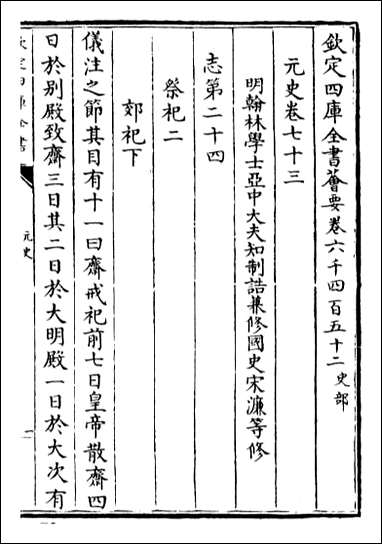 欽定四庫全書薈要卷六千四百五十二 史部
元史卷七十三
明翰林學士亞中大夫知制誥兼修國史宋濂等修
志第二十四
祭祀二
郊祀下
儀注之節其目有十一曰齋戒祀前七日皇帝散齋四
日於别殿致齋三日其二日於大明殿一日於大次有
欽定四庫全書
元史
一